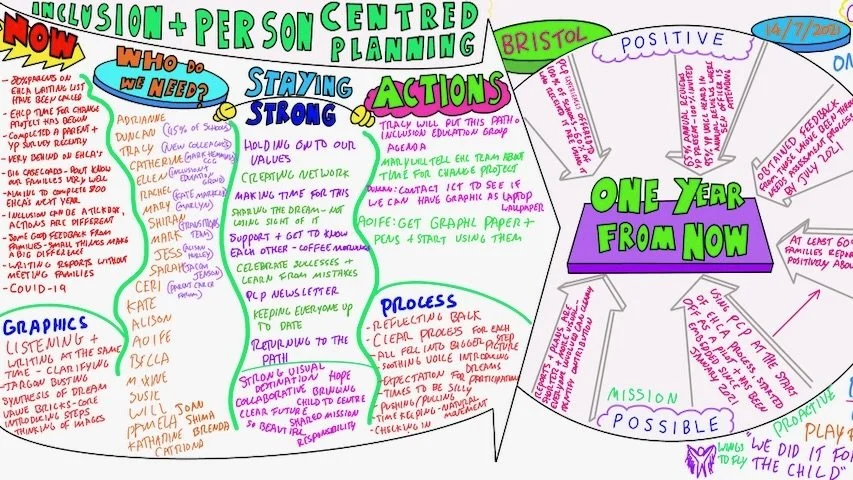 INCLUSION + PERSON CENTRED
PLANNING
NOW
- 80% PARENTS ON
EHCA WAITING LIST
HAVE BEEN CALLED
- EHCP TIME FOR CHANGE
PROJECT HAS BEGUN
- COMPLETED A PARENT +
YP SURVEY RECENTLY
- VERY BEHIND ON EHCA'S
- BIG CASELOADS - DON'T KNOW
OUR FAMILIES VERY WELL
- AIMING TO COMPLETE 800
EHCAS NEXT YEAR
- INCLUSION CAN BE A TICKBOX,
ACTIONS ARE DIFFERENT
- SOME GOOD FEEDBACK FROM
FAMILIES - SMALL THINGS MAKE
A BIG DIFFERENCE
- WRITING REPORTS WITHOUT
MEETING FAMILIES
- COVID-19
GRAPHICS
LISTENING +
WRITING AT THE SAME
TIME - CLARIFYING
JARGON BUSTING
SYNTHESIS OF DREAM
VALUE BRICKS - CORE
INTRODUCING STEPS
THINKING OF IMAGES
WHO DO
WE NEED?
ADRIANNE
DUNCAN (45% OF SCHOOLS)
TRACY (NEW COLLEAGUES)
CATHERINE (MARK HEMMINGS
CCG)
ELLEN (INCLUSION EDUCATION
GROUP)
RACHEL (KATE MARKLEY)
MARY (MARILYN)
SHIRAN
MARK (TRANSITIONS
TEAM)
JESS (ALISON
HURLEY)
SARAH (JACQUI
JENSEN)
CERI (PARENT CARER
FORUM)
KATE
ALISON
AOIFE
BELLA
MAXINE
SUSIE
WILL JOAN
PAMELA SHIMA
KATHARINE BRENDA
CATRIONA
STAYING
STRONG
HOLDING ON TO OUR
VALUES
CREATING NETWORK
MAKING TIME FOR THIS
SHARING THE DREAM - NOT
LOSING SIGHT OF IT
SUPPORT + GET TO KNOW
EACH OTHER - COFFEE MORNINGS
CELEBRATE SUCCESSES +
LEARN FROM MISTAKES
PCP NEWSLETTER
KEEPING EVERYONE UP
TO DATE
RETURNING TO THE
PATH
STRONG VISUAL
DESTINATION HOPE
COLLABORATIVE BRINGING
CHILD TO CENTRE
CLEAR FUTURE
SHARED MISSION
SO BEAUTIFUL
RESPONSIBILITY
ACTIONS
TRACY WILL PUT THIS PATH ON
INCLUSION EDUCATION GROUP
AGENDA
MARY WILL TELL EHC TEAM ABOUT
TIME FOR CHANGE PROJECT
DUNCAN: CONTACT ICT TO SEE IF
WE CAN HAVE GRAPHIC AS LAPTOP
WALLPAPER
AOIFE: GET GRAPHIC PAPER +
PENS + START USING THEM
PROCESS
- REFLECTING BACK
- CLEAR PROCESS FOR EACH
STEP
- ALL FELL INTO BIGGER PICTURE
- SOOTHING VOICE INTRODUCING
DREAMS
- EXPECTATION FOR PARTICIPATION
- TIMES TO BE SILLY
- PUSHING/PULLING
- TIME KEEPING - NATURAL
MOVEMENT
- CHECKING IN
BRISTOL
POSITIVE
14/7/2021
PCP OFFERED TO
100% OF SCHOOLS - 60%
WHO RECEIVED IT ARE USING IT
65% ANNUAL REVIEWS
UP PRESENT - 100% INVITED
95% YP VOICE HEARD IN
ANNUAL REVIEWS WHERE
SEN OFFICER IS
ATTENDING
OBTAINED FEEDBACK
FROM THOSE WHO'VE BEEN THROUGH
NEEDS ASSESSMENT PROCESS
BY JULY 2021
ONE YEAR
FROM NOW
AT LEAST 60%
FAMILIES REPORT
POSITIVELY ABOUT
REPORTS + PLANS ARE
SHORTER + MORE VISUAL -
EVERYONE INVOLVED CAN CLEARLY
IDENTIFY CONTRIBUTION
USING PCP AT THE START
OF EHCA PROCESS STARTED
OFF AS A PILOT + HAS BEEN
EMBEDDED SINCE
JANUARY 2021
MISSION
POSSIBLE
PROACTIVE
WINGS
TO FLY
"WE DID IT FOR
THE CHILD"